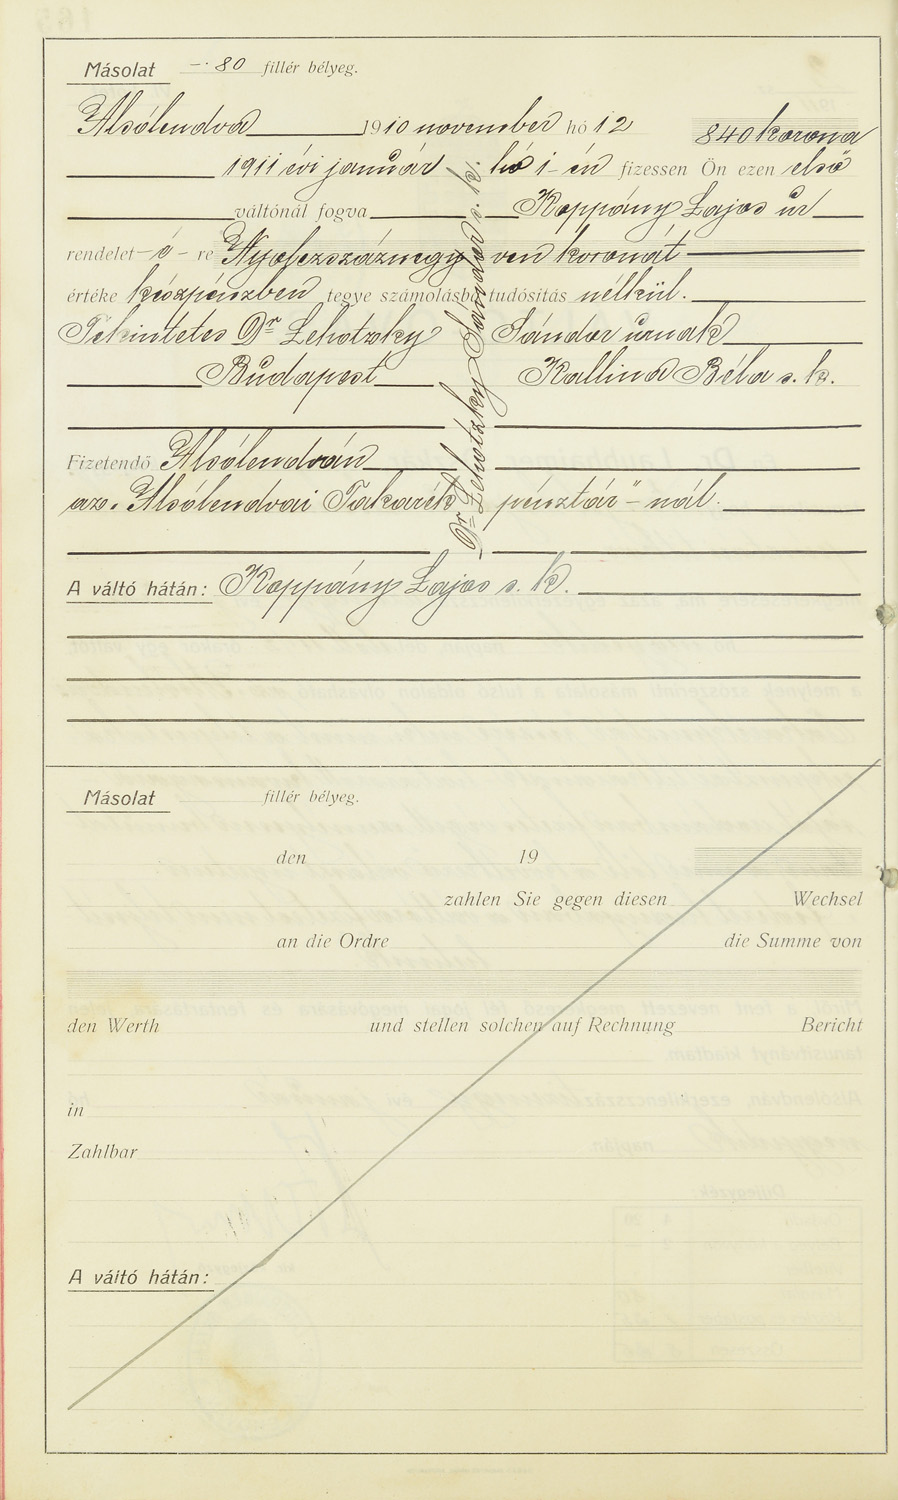 Másolat —·80 fillér bélyeg.
Alsólendva 1910 november hó 12 840 korona
1911 évi január hó 1-én fizessen Ön ezen első
váltónál fogva Koppány Lajos úr
rendelet-é-re Nyolczszáznegyven koronát
értéke készpénzben tegye számolásba tudósitás nélkül.
Tekintetes Dr Lehotzky Sándor úrnak
Budapest Kallina Béla s. k.
Dr Lehotzky Sándor s. k.
Fizetendő Alsólendván
az „Alsólendvai Takarékpénztár"-nál.
A váltó hátán: Koppány Lajos s. k.
Másolat fillér bélyeg.
den 19
zahlen Sie gegen diesen Wechsel
an die Ordre die Summe von
den Werth und stellen solchen auf Rechnung Bericht
in
Zahlbar
A váltó hátán: